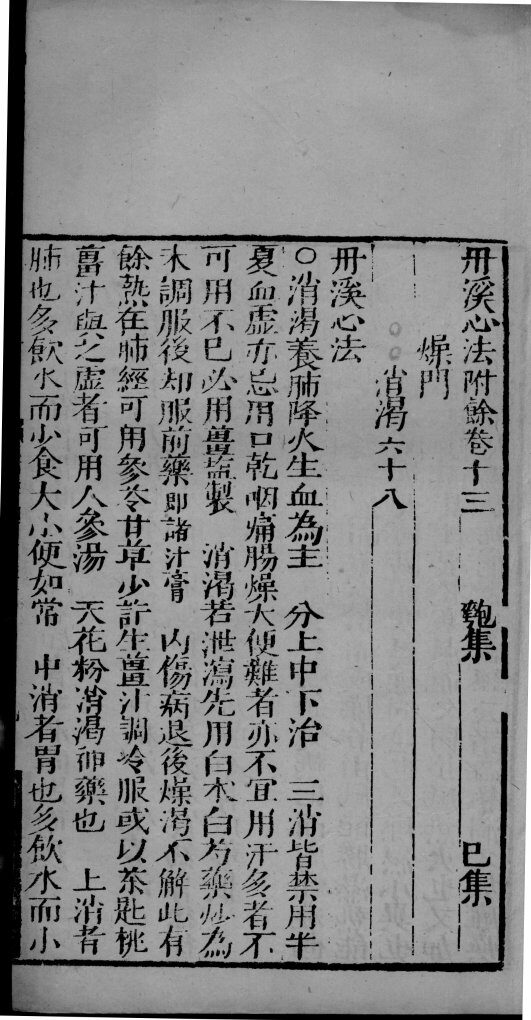 丹溪心法附餘卷十三　匏集　巳集
燥門
○○消渴六十八
丹溪心法
○消渴養肺降火生血為主　分上中下治　三消皆禁用半
夏血虛亦忌用口乾咽痛腸燥大便難者亦不宜用汗多者不
可用不已必用薑鹽製　消渴若泄瀉先用白朮白芍藥炒為
末調服後却服前藥即諸汁膏　內傷病退後燥渴不解此有
餘熱在肺經可用參苓甘草少許生薑汁調冷服或以茶匙桃
薑汁與之虛者可用人參湯　天花粉消渴神藥也　上消者
肺也多飲水而少食大小便如常　中消者胃也多飲水而小